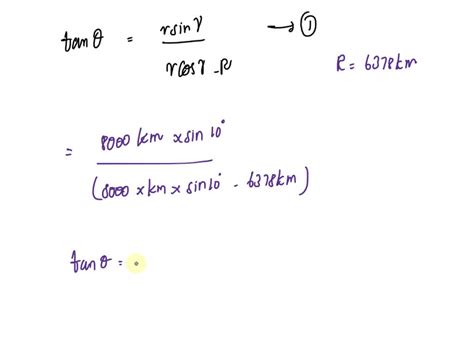 tanθ = rsinγ / rcosγ - R → ①
R = 6378km
= 8000 km × sin 10° / (8000 × km × sin 10° - 6378km)
tanθ =